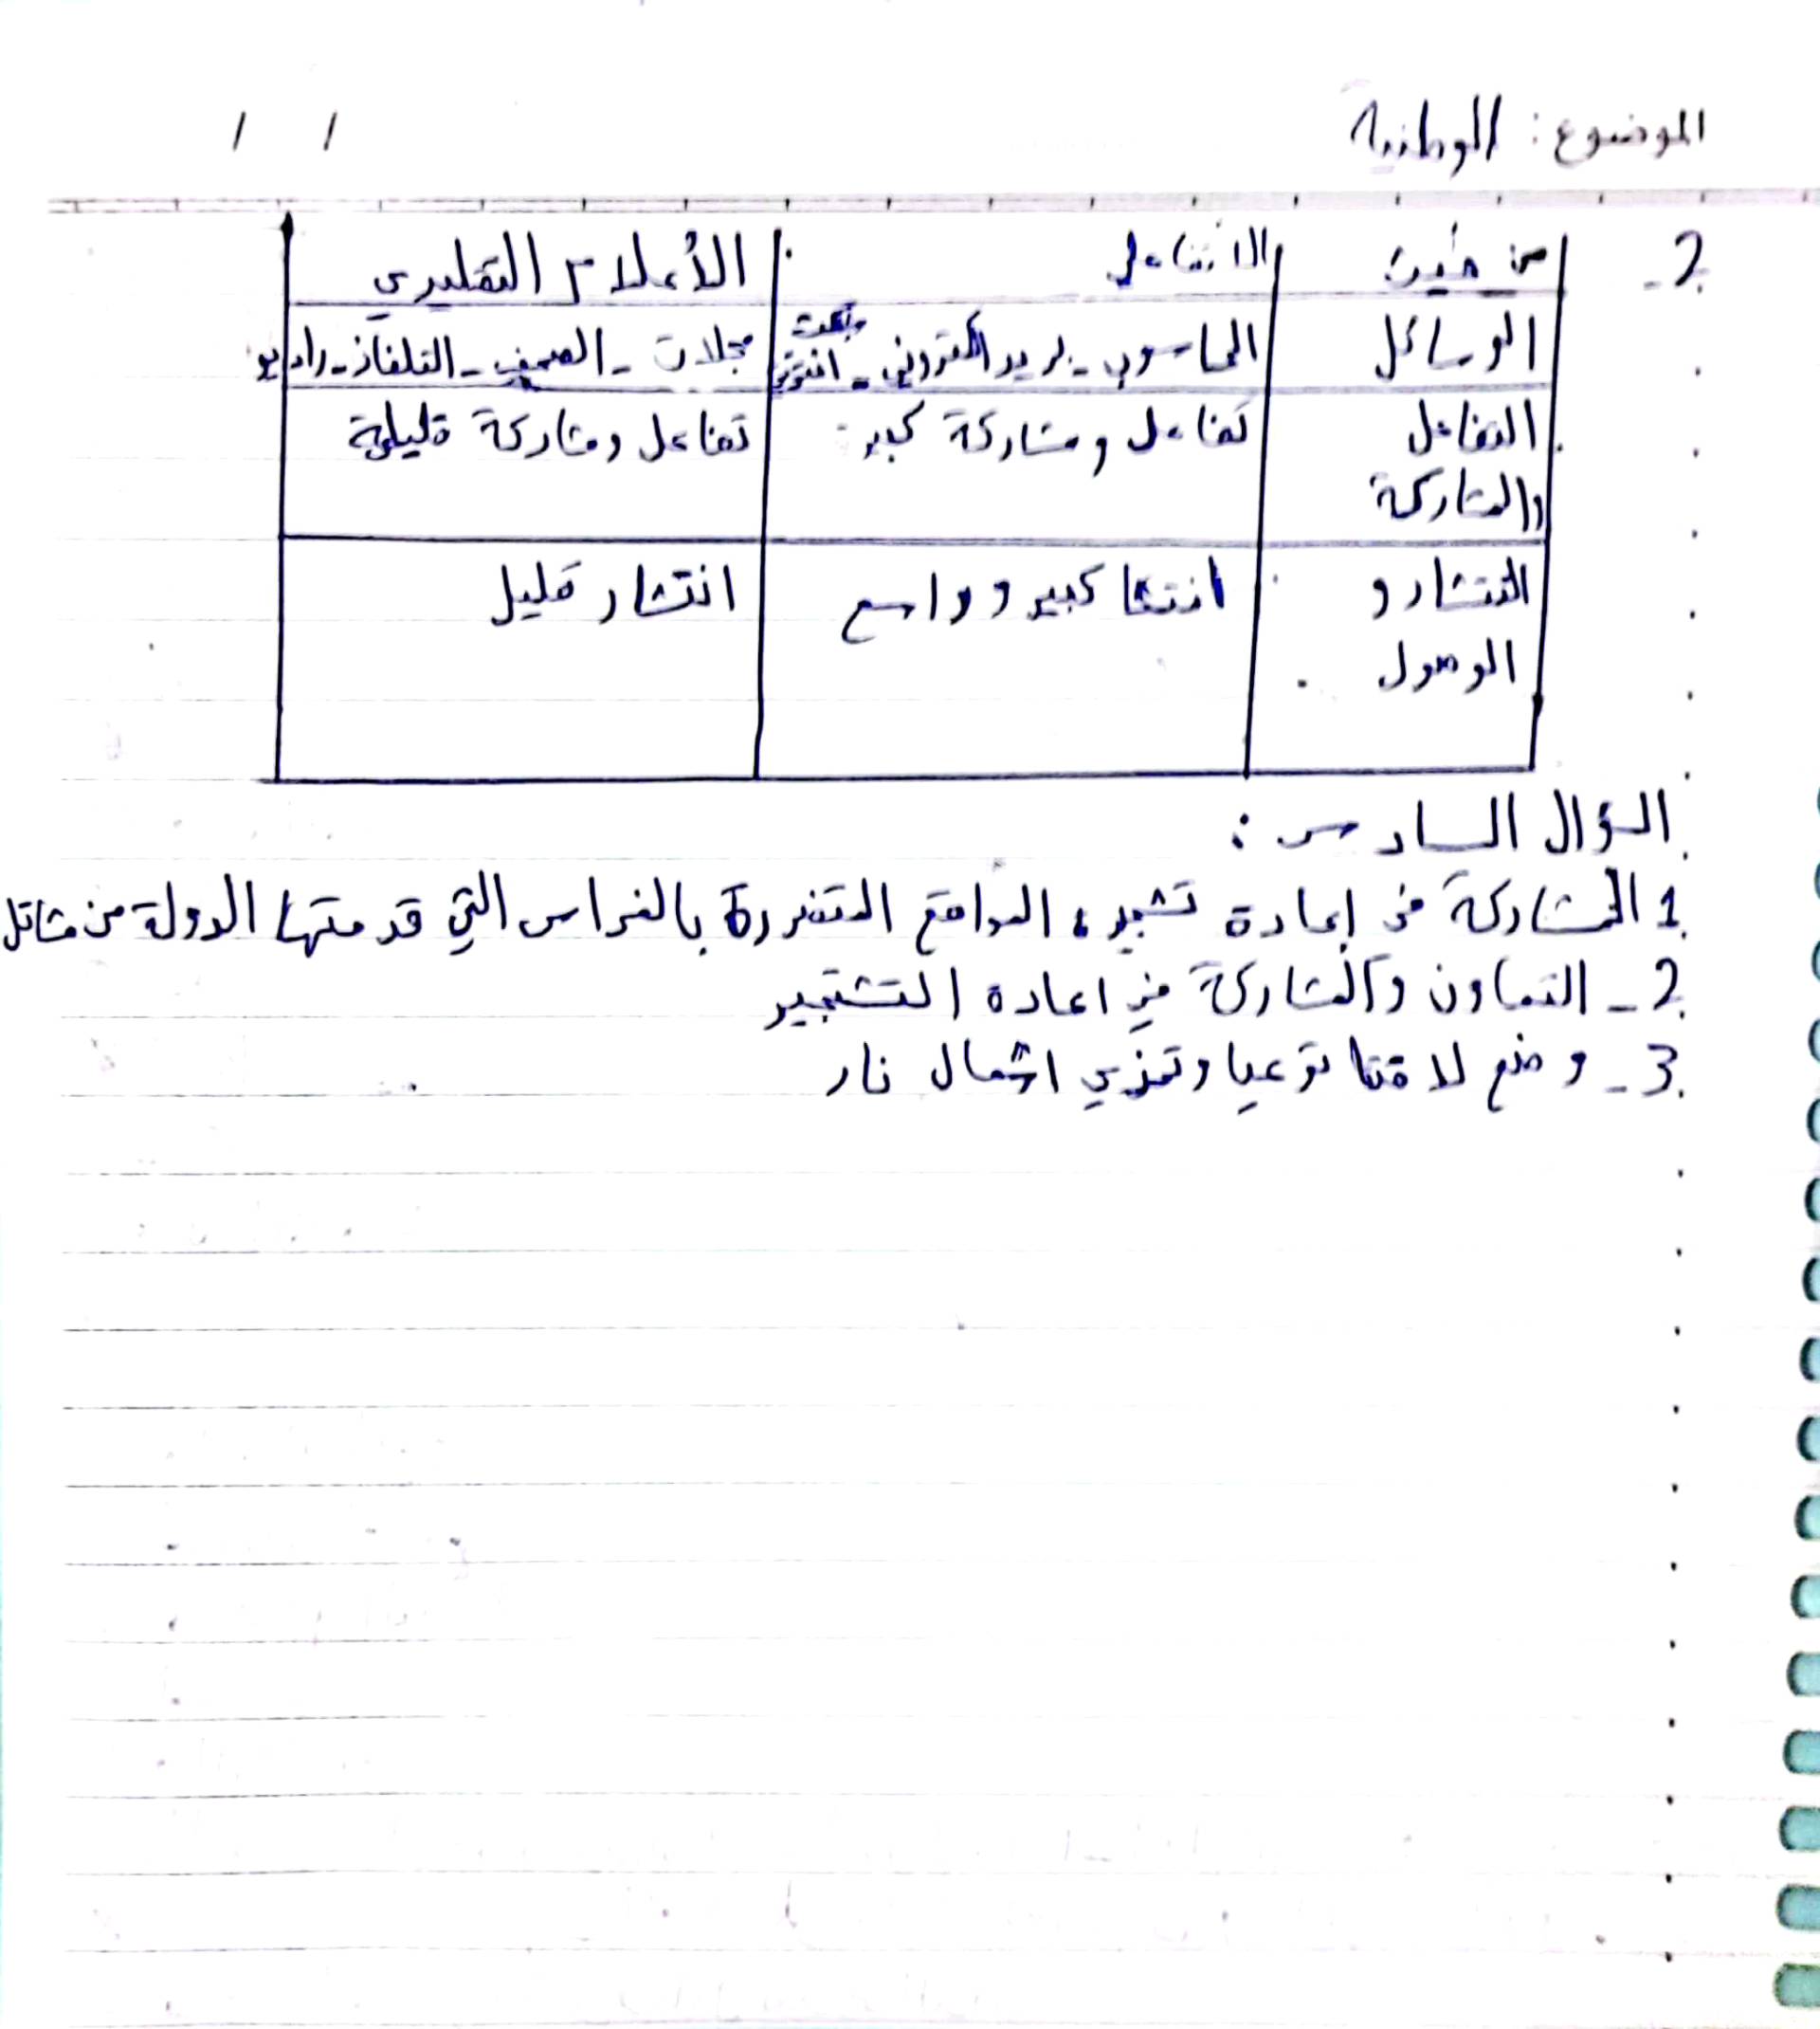 الموضوع: الوطنية / /
2- من حيث التفاعلي الأعلام التقليدي
الوسائل الحاسوب - بريد الكتروني - انترنت مجلات - الصحف - التلفاز - راديو
التفاعل تفاعل ومشاركة كبير تفاعل ومشاركة قليلة
والمشاركة
التنشار و انتشا كبير و واسع انتشار قليل
الوصول
السؤال السادس :
1 المشاركة في إعادة تشجير المواقع المتضررة بالغراس التي قدمتها الدولة من مشاتل
2- التعاون والمشاركة في اعادة التشجير
3- وضع لافتا توعيا وتحذي اشعال نار